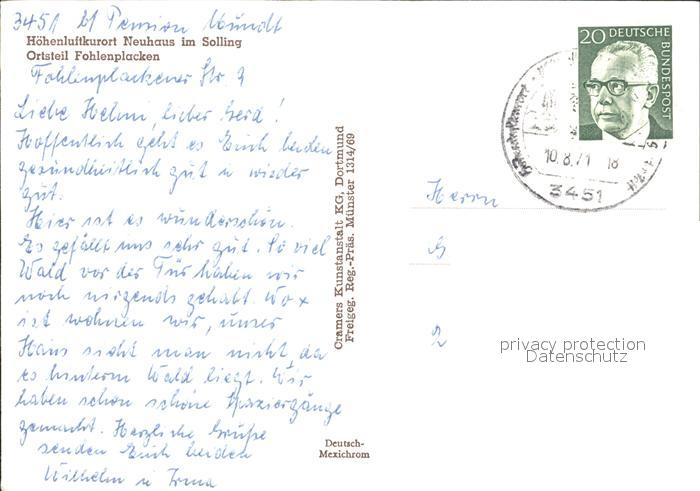 3451 Pension Mündt
Höhenluftkurort Neuhaus im Solling
Ortsteil Fohlenplacken
Fohlenplackener Str. 9
Liebe Helmi, lieber Gerd!
Hoffentlich geht es Euch beiden
gesundheitlich gut u wieder
gut.
Hier ist es wunderschön.
Es gefällt uns sehr gut. So viel
Wald vor der Tür haben wir
noch nirgends gehabt. Wo x
ist wohnen wir, unser
Haus sieht man nicht, da
es hinterm Wald liegt. Wir
haben schon schöne Spaziergänge
gemacht. Herzliche Grüße
senden Euch beiden
Wilhelm u Irma
Cramers Kunstanstalt KG, Dortmund
Freigeg. Reg.-Präs. Münster 1314/69
Deutsch-
Mexichrom
20 DEUTSCHE
BUNDESPOST
10.8.71 18
3451
Herrn
G
privacy protection
Datenschutz